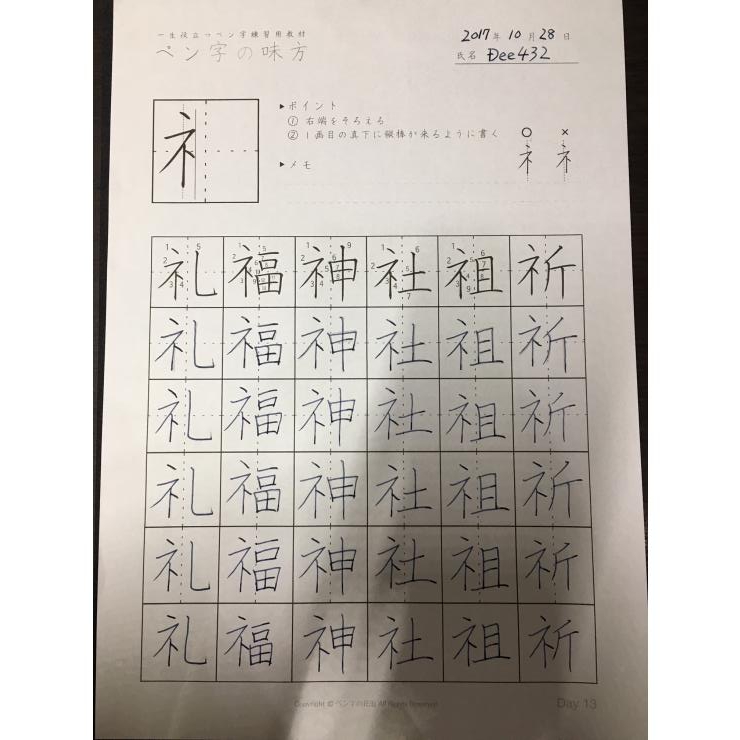 一生役立つペン字練習用教材
ペン字の味方
2017年10月28日
氏名 Dee432
ネ
▶ポイント
① 右端をそろえる
② 1画目の真下に縦棒が来るように書く
○ ×
ネ ネ
▶メモ
礼 福 神 社 祖 祈
礼 福 神 社 祖 祈
礼 福 神 社 祖 祈
礼 福 神 社 祖 祈
礼 福 神 社 祖 祈
礼 福 神 社 祖 祈
Copyright © ペン字の味方 All Rights Reserved
Day. 13